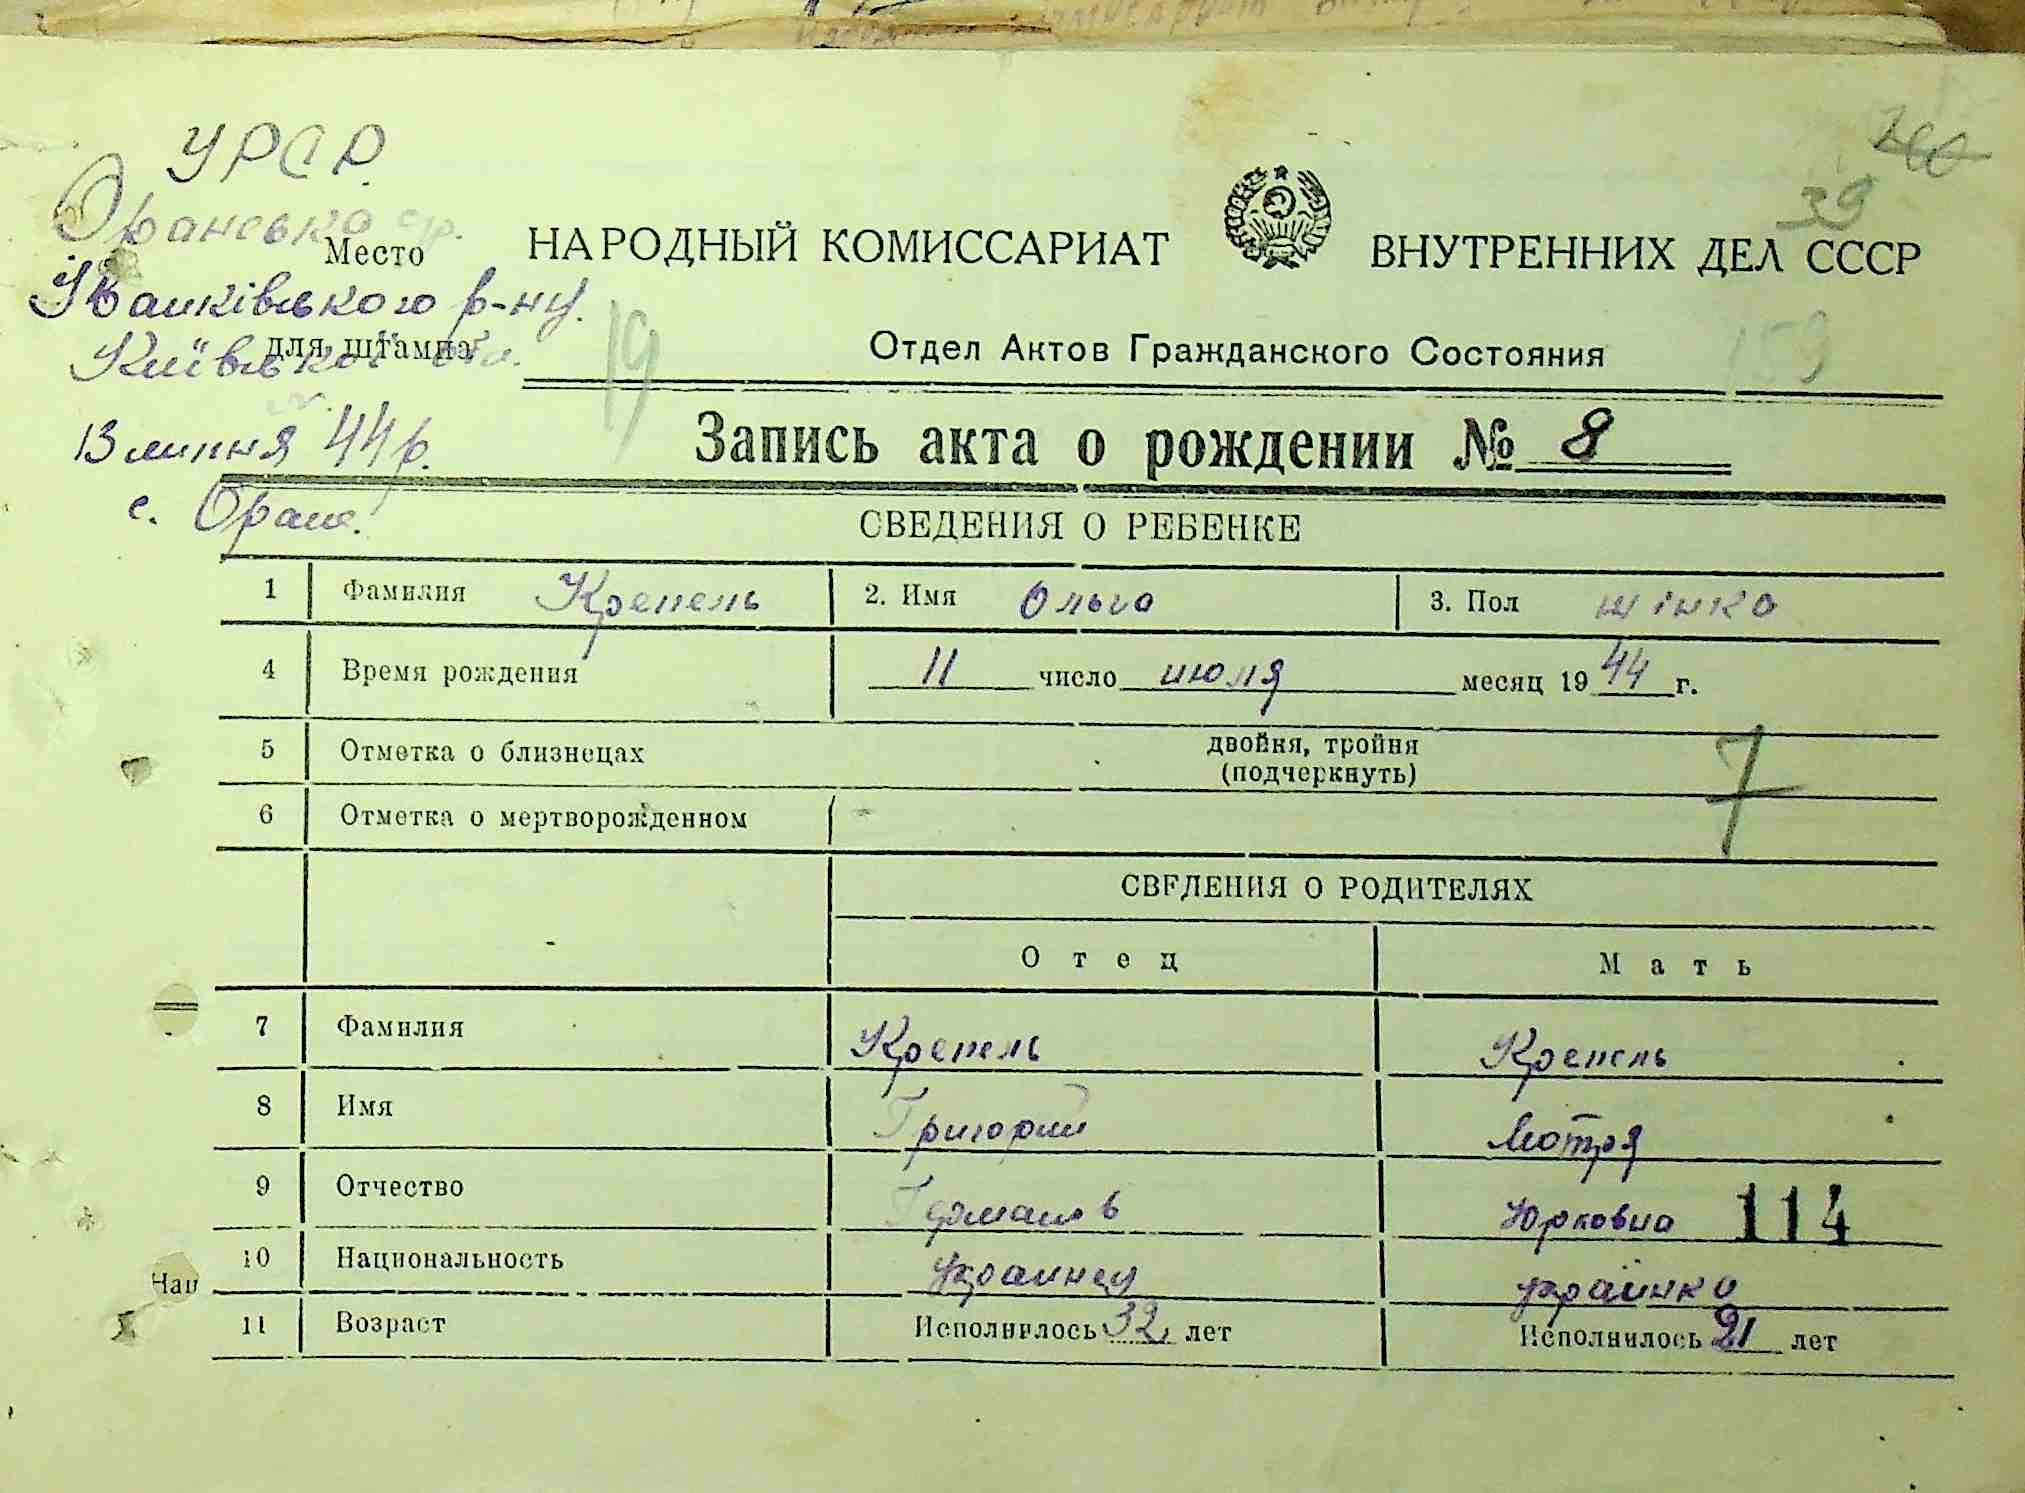 УРСР
Оранська ср.
Место
Іванківського р-ну.
для штампа
Київської обл.
13 липня 44 р.
с. Оране.
39
НАРОДНЫЙ КОМИССАРИАТ ВНУТРЕННИХ ДЕЛ СССР
19
159
Отдел Актов Гражданского Состояния
Запись акта о рождении № 8
СВЕДЕНИЯ О РЕБЕНКЕ
1 Фамилия Крепель 2. Имя Ольга 3. Пол жінка
4 Время рождения 11 число июля месяц 1944 г.
5 Отметка о близнецах двойня, тройня
(подчеркнуть)
7
6 Отметка о мертворожденном
СВЕДЕНИЯ О РОДИТЕЛЯХ
Отец Мать
7 Фамилия Крепель Крепель
8 Имя Григорий Мотря
9 Отчество Юрковна 114
10 Национальность украинец українка
Нац
11 Возраст Исполнилось 32 лет Исполнилось 21 лет